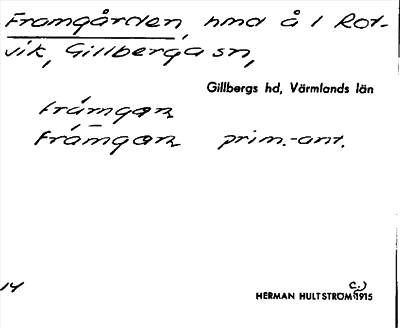 Framgården, hmd å 1 Rot-
vik, Gillberga sn,
Gillbergs hd, Värmlands län
frámgan
frámgan prim.-ant.
14
C.)
HERMAN HULTSTRÖM 1915